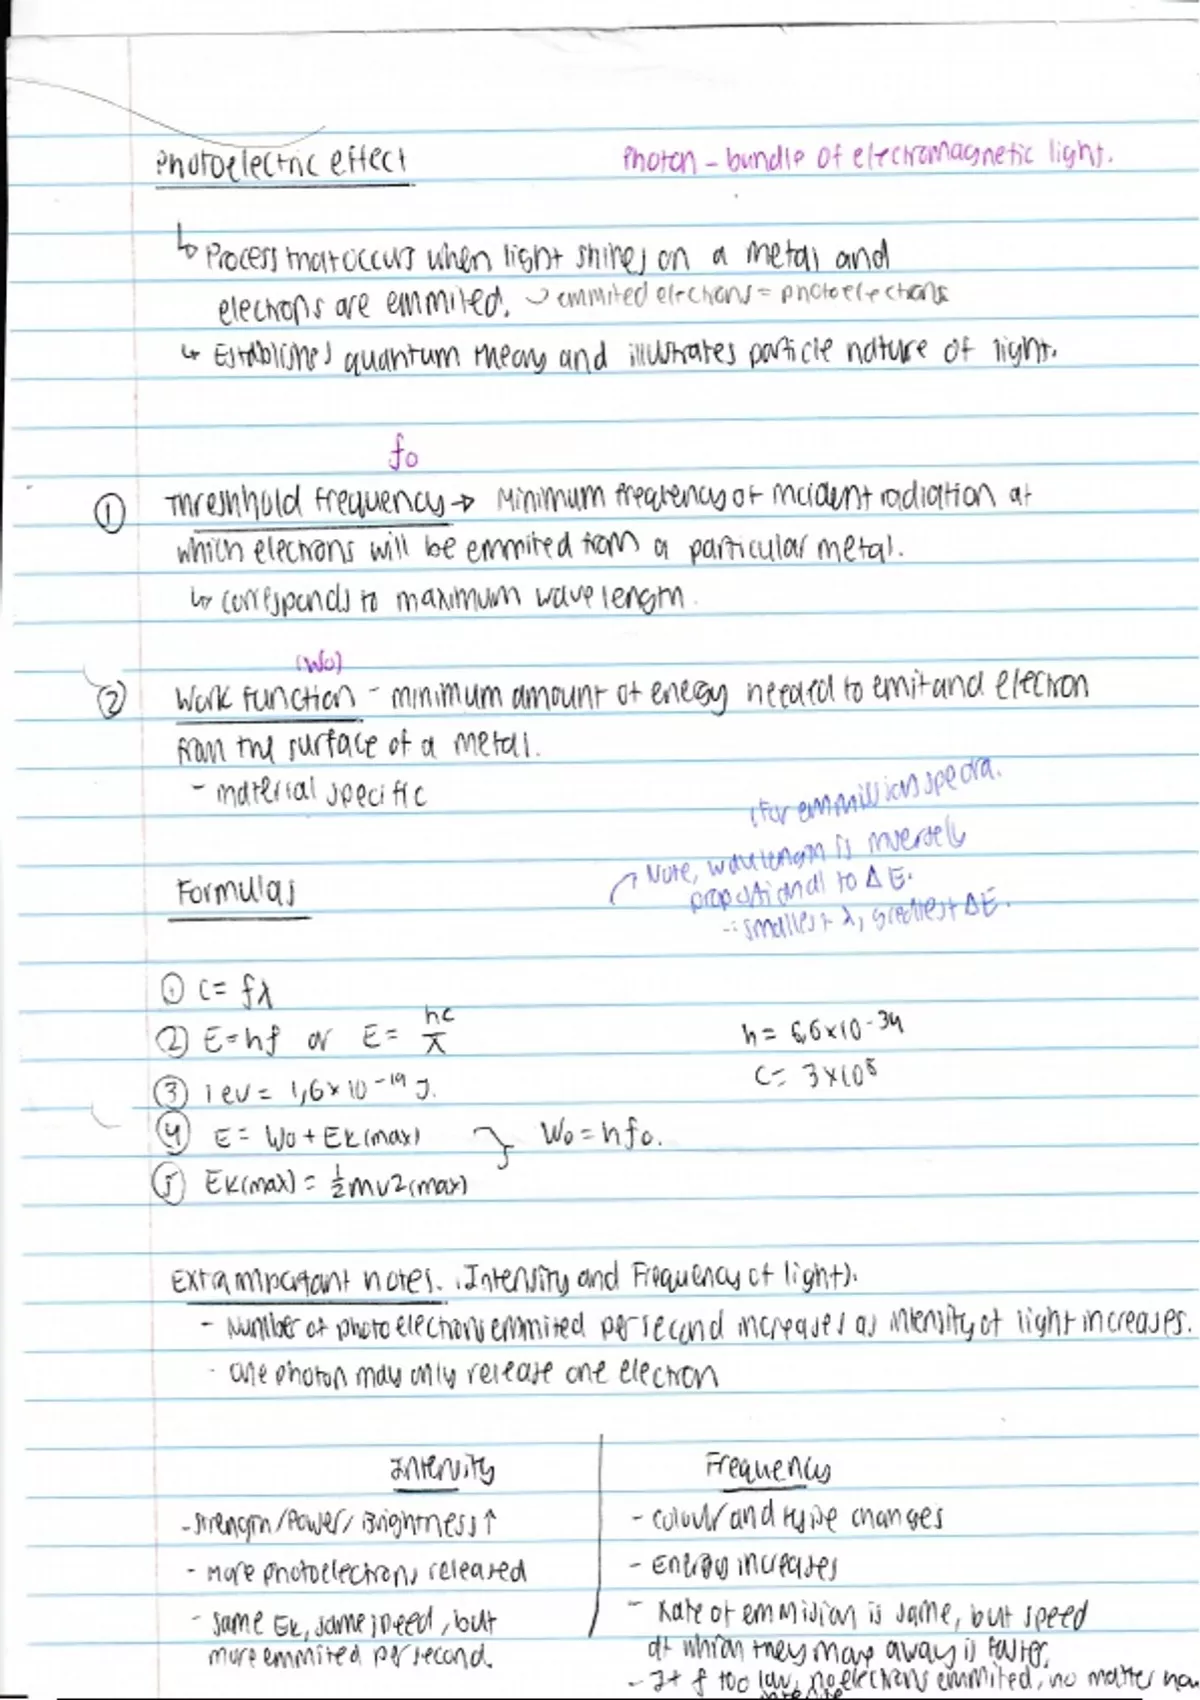 Photoelectric effect
Photon - bundle of electromagnetic light.
↳ Process that occurs when light shines on a metal and
electrons are emmited. → emmited electrons = photoelectrons
↳ Establishes quantum theory and illustrates particle nature of light.
f0
① Threshhold frequency → Minimum frequency of incident radiation at
which electrons will be emmited from a particular metal.
↳ corresponds to maximum wavelength.
(W0)
② Work function - minimum amount of energy needed to emit and electron
from the surface of a metal.
- material specific
(for emmission spectra.
Note, wavelength is inversely
proportional to ΔE.
∴ smallest λ, greatest ΔE.
Formulas
① c = fλ
② E = hf or E = hc/λ
h = 6,6 × 10-34
c = 3 × 10^8
③ 1 eV = 1,6 × 10^-19 J.
④ E = W0 + Ek(max) } W0 = hf0.
⑤ Ek(max) = ½mv2(max)
Extra important notes. (Intensity and Frequency of light).
- Number of photoelectrons emmited per second increases as intensity of light increases.
- one photon may only release one electron
Intensity
- Strength/Power/Brightness ↑
- More photoelectrons released
- Same Ek, same speed, but
more emmited per second.
Frequency
- Colour and type changes
- Energy increases
- Rate of emmision is same, but speed
at which they move away is faster.
- If f too low, no electrons emmited, no matter